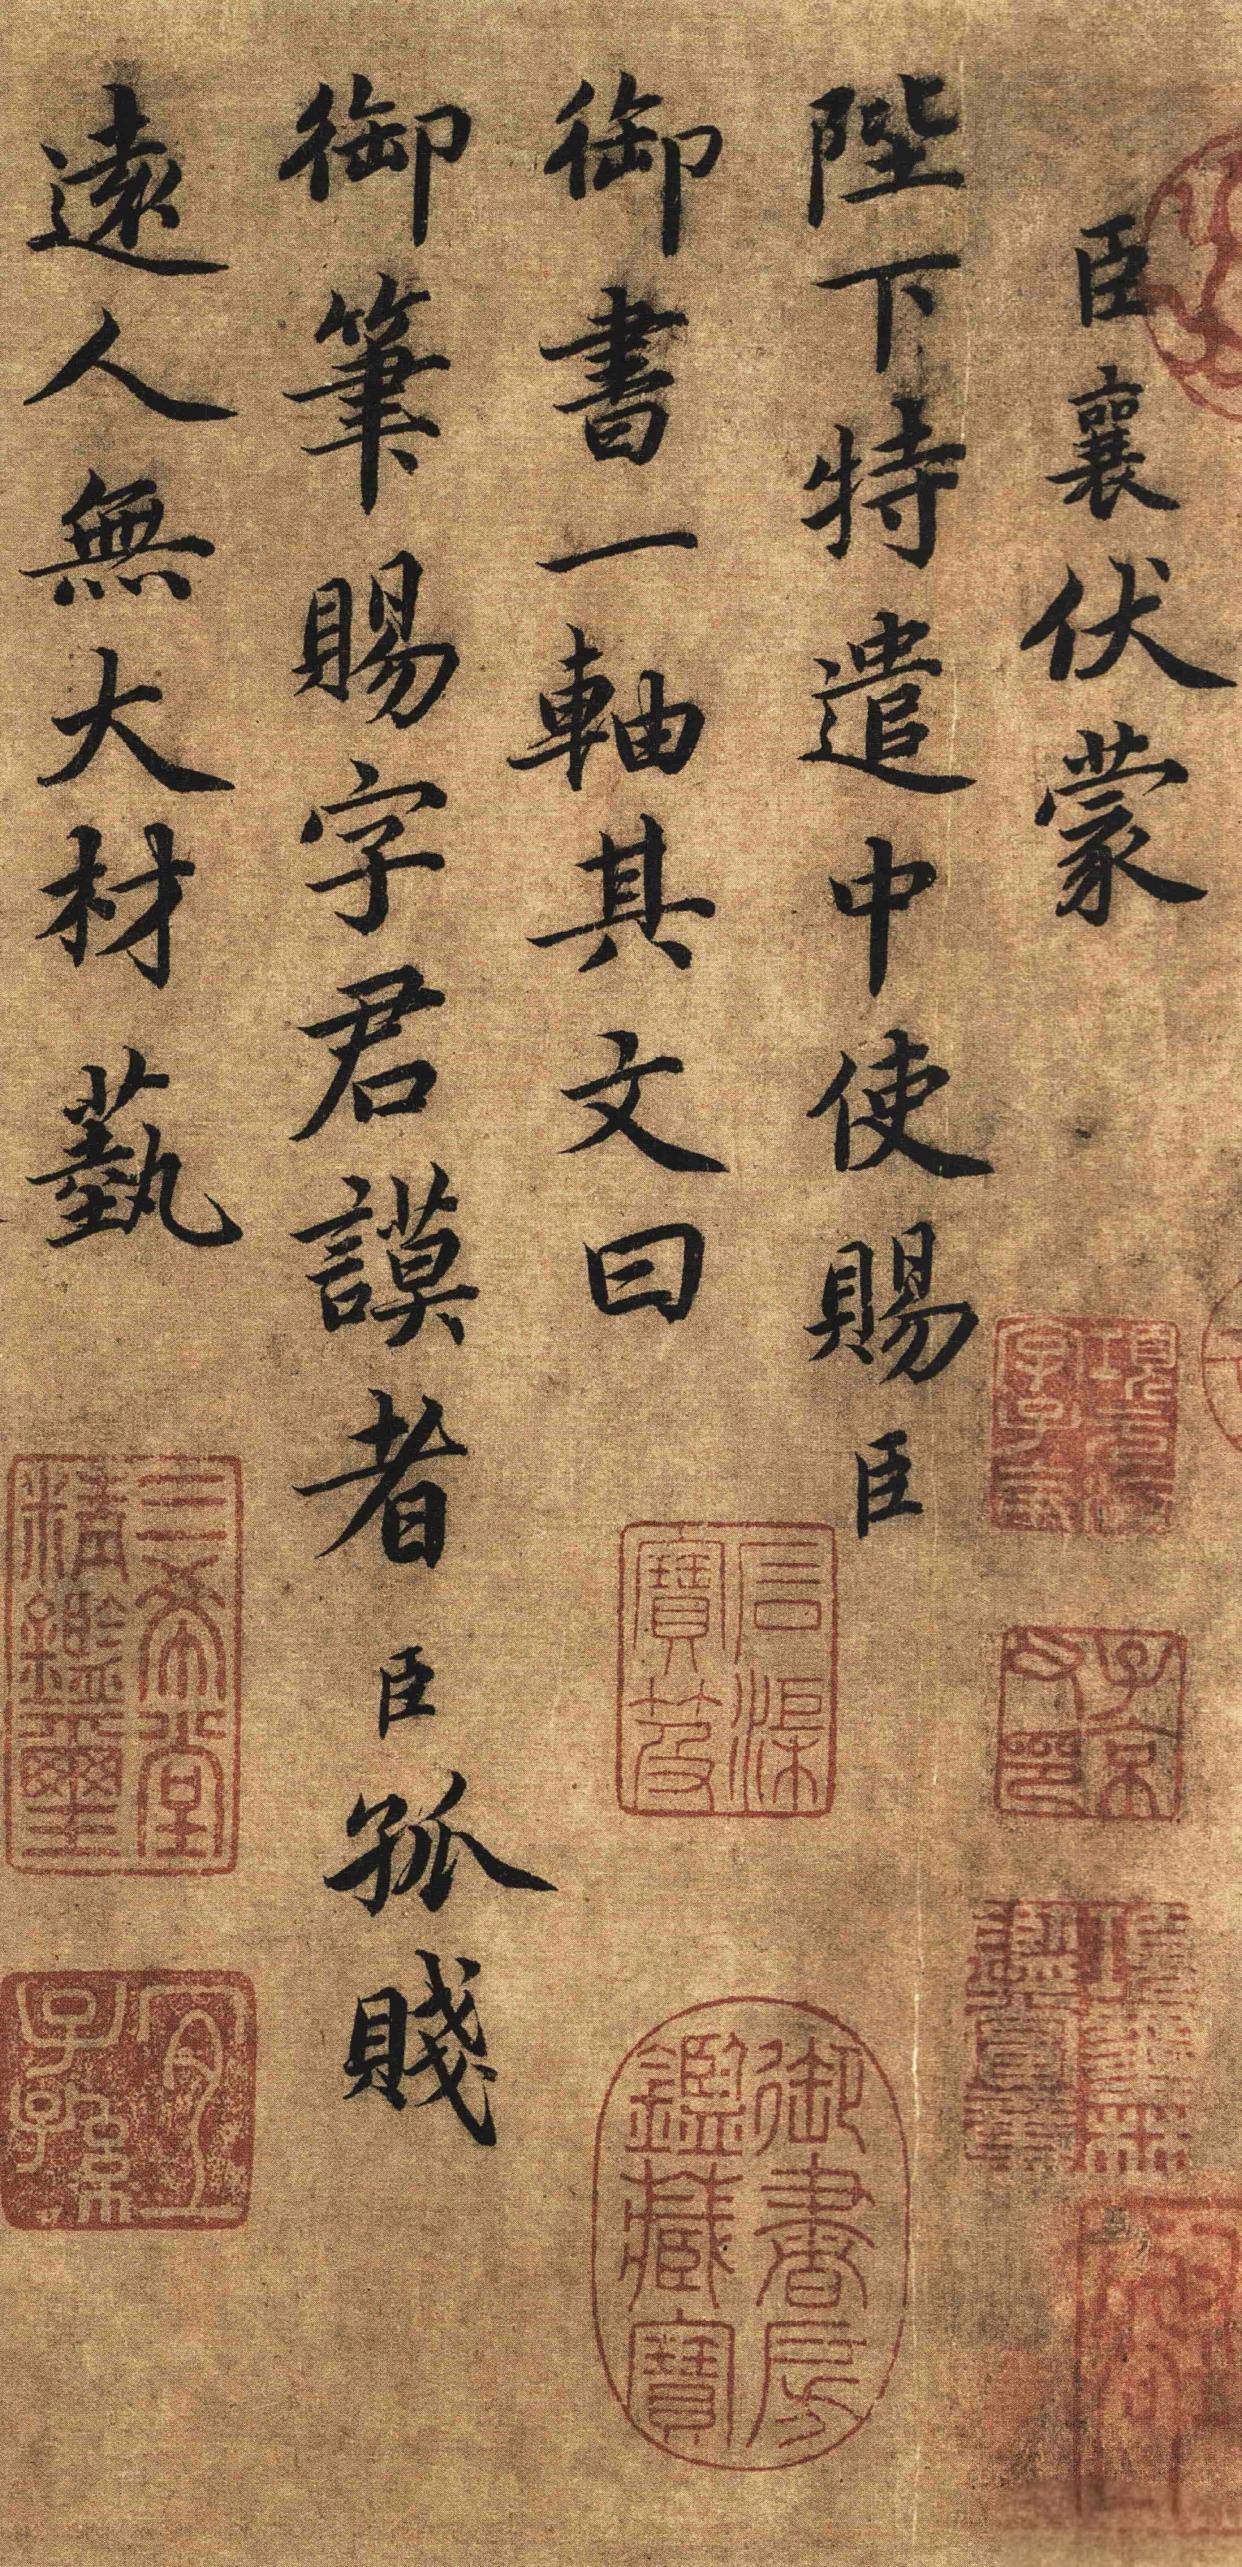 臣襄伏蒙
陛下特遣中使賜臣
御書一軸其文曰
御筆賜字君謨者臣孤賤
遠人無大材藝
子京父印
信淂寶笈
御書房鑑藏寶
三希堂精鑑璽
宜子孫